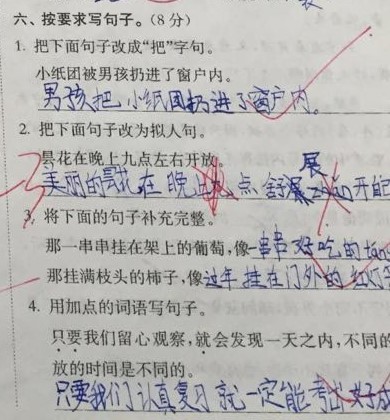 六、按要求写句子。(8分)
1. 把下面句子改成“把”字句。
小纸团被男孩扔进了窗户内。
男孩把小纸团扔进了窗户内。
2. 把下面句子改为拟人句。
昙花在晚上九点左右开放。
展
美丽的昙花在晚上九点,舒展
开的
3. 将下面的句子补充完整。
那一串串挂在架上的葡萄,像一串串好吃的
那挂满枝头的柿子,像过年挂在门外的红灯
4. 用加点的词语写句子。
只要我们留心观察,就会发现一天之内,不同的
放的时间是不同的。
只要我们认真复习就一定能考出好成